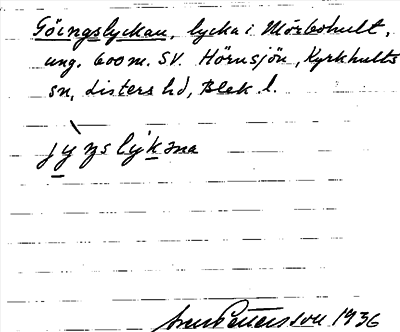 Göingslyckan, lycka i Mörbohult,
ung. 600 m. SV. Hörnsjön, Kyrkhults
sn, Listers hd, Blek. l.
jỳŋslykəna
Pettersson 1936